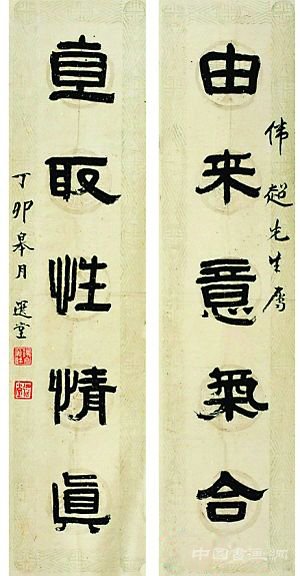 伟超先生属
由来意氣合
直取性情真
丁卯皋月 選堂
中国书画网